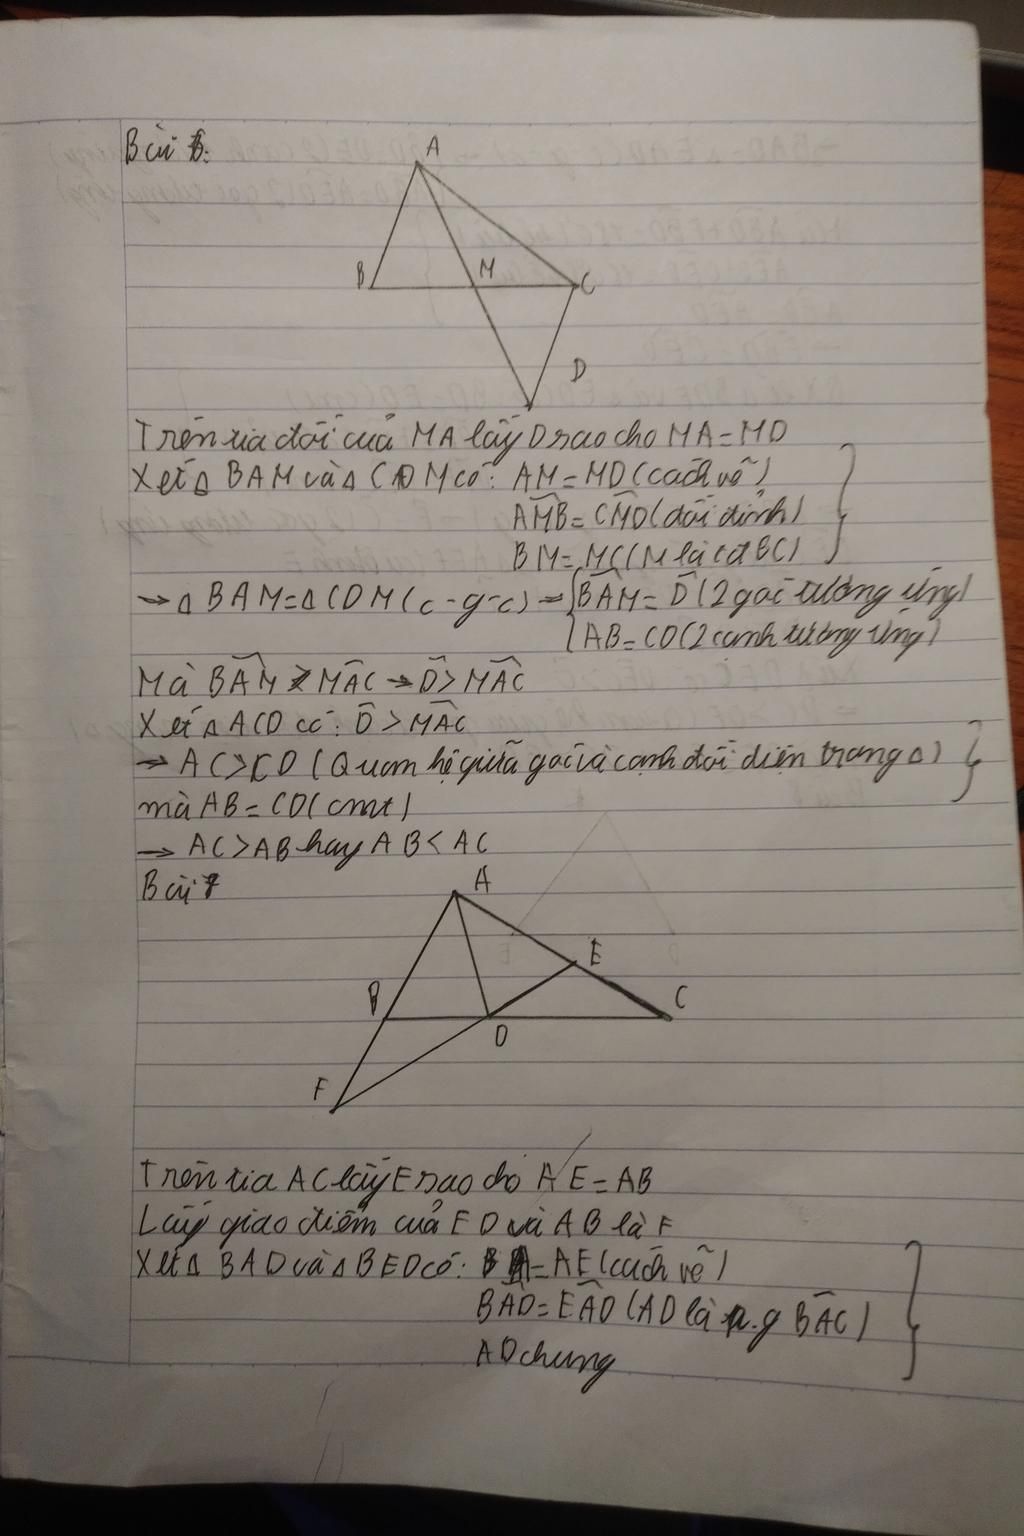 Bài 6:
A
B
M
C
D
Trên tia đối của MA lấy D sao cho MA = MD
Xét Δ BAM và Δ CDM có: AM = MD (cách vẽ)
AMB = CMD (đối đỉnh)
BM = MC (M là tđ BC)
→ Δ BAM = Δ CDM (c-g-c) → BAM = D (2 góc tương ứng)
AB = CD (2 cạnh tương ứng)
Mà BAM > MAC → D > MAC
Xét Δ ACD có: D > MAC
→ AC > CD (Quan hệ giữa góc và cạnh đối diện trong Δ)
mà AB = CD (cmt)
→ AC > AB hay AB < AC
Bài 7
A
E
B
C
D
F
Trên tia AC lấy E sao cho AE = AB
Lấy giao điểm của ED và AB là F
Xét Δ BAD và Δ BED có: BA = AE (cách vẽ)
BAD = EAD (AD là p.g BAC)
AD chung